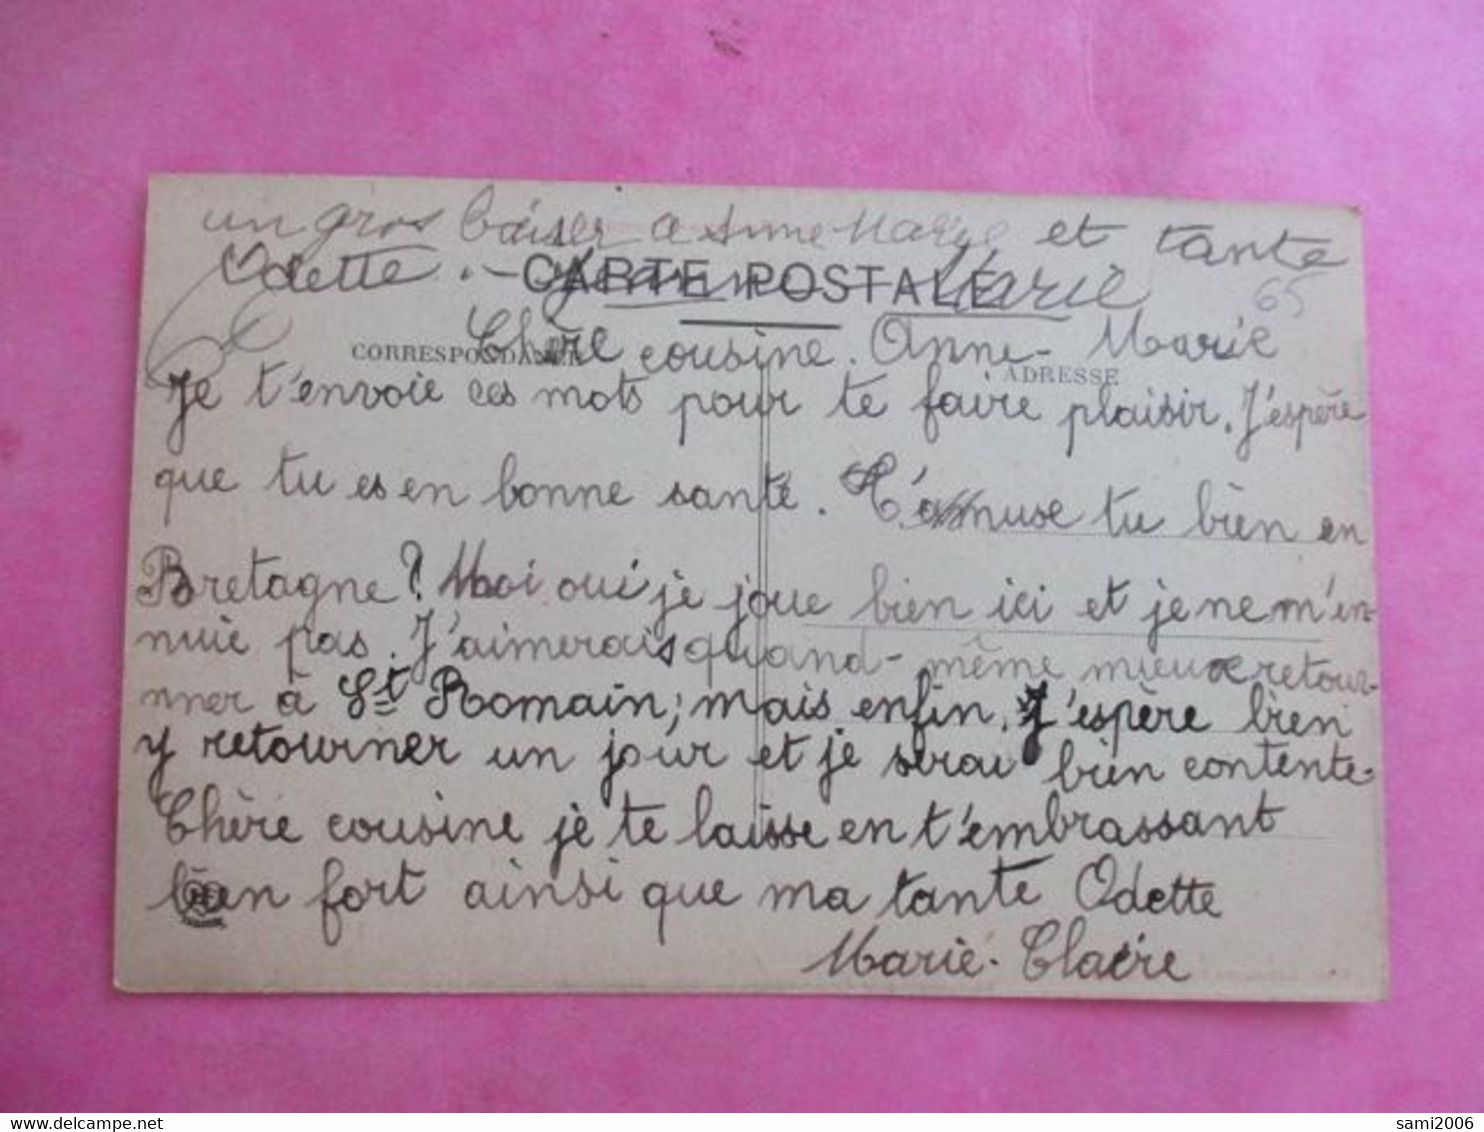 un gros baiser a Anne Marie et tante
Odette. Marie
CARTE POSTALE
65
Chère cousine. Anne-Marie
CORRESPONDANCE
ADRESSE
Je t'envoie ces mots pour te faire plaisir. J'espère
que tu es en bonne santé. T'amuse tu bien en
Bretagne? Moi oui je joue bien ici et je ne m'en-
nuie pas. J'aimerais quand-même mieux retour-
ner à St Romain; mais enfin. J'espère bien
y retourner un jour et je serai bien contente.
Chère cousine je te laisse en t'embrassant
bien fort ainsi que ma tante Odette
Marie-Claire
sami2006